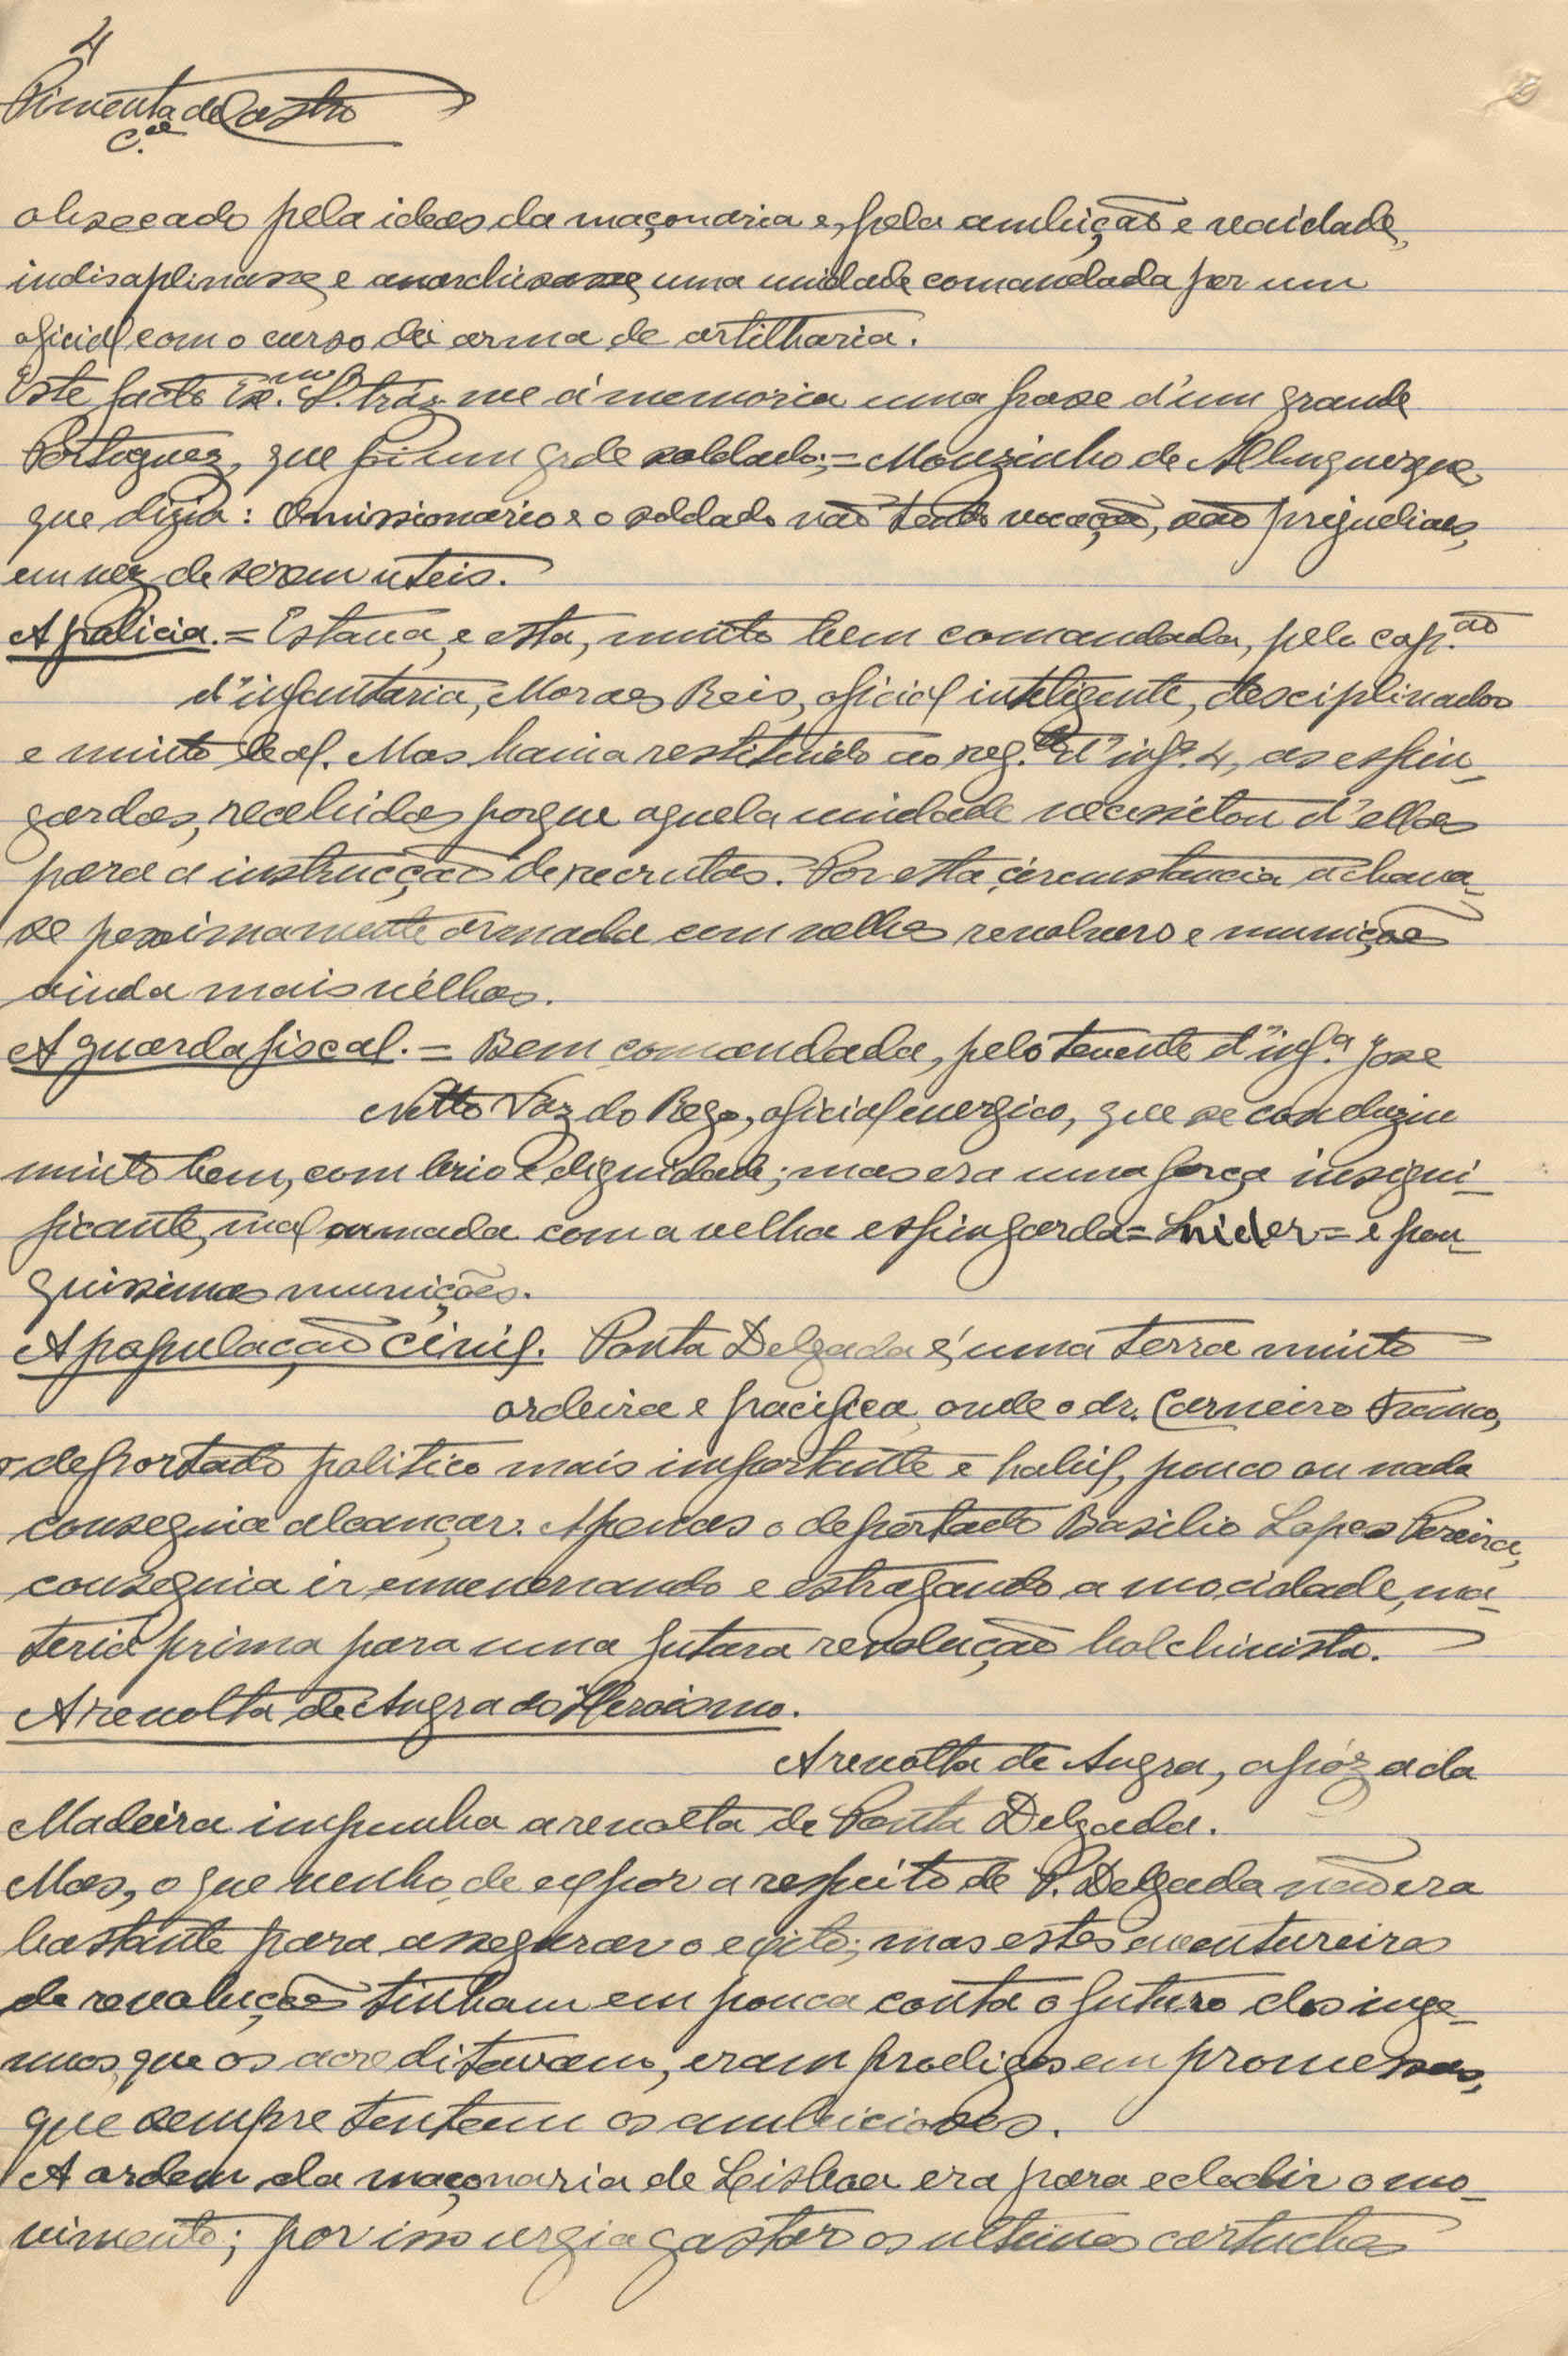 4
Pimenta de Castro
C.el
obsecado pela ideas da maçonaria e, pela ambição e vaidade,
indisciplinasse e anarchisasse, uma unidade comandada por um
oficial com o curso da arma de artilharia.
Este facto Ex.mo S.r tráz-me á memoria uma frase d'um grande
Portuguez, que foi um grde soldado; = Mouzinho de Albuquerque,
que dizia: O missionario e o soldado não tendo vocação, são prejudiciaes,
em vez de serem uteis.
A policia. = Estava, e esta, muito bem comandada, pelo cap.ão
d'infantaria, Moraes Reis, oficial inteligente, desciplinador
e muito leal. Mas havia restituido ao reg.to d'inf.a 4, as espin-
gardas, recebidas porque aquela unidade necessitou d'ellas
para a instrucção de recrutas. Por esta circunstancia achava-
se pessimamente armada com velhos revolvers e munições
ainda mais vélhas.
A guarda fiscal. = Bem comandada, pelo tenente d'inf.a José
Netto Vaz do Rego, oficial energico, que se conduziu
muito bem, com brio e dignidade; mas era uma força insigni-
ficante, mal armada com a velha espingarda = Snider = e pou-
quissimas munições.
A população civil. Ponta Delgada é, uma terra muito
ordeira e pacifica, onde o dr. Carneiro Franco,
o deportado politico mais importante e habil, pouco ou nada
conseguia alcançar. Apenas o deportado Basilio Lopes Pereira,
conseguia ir envenenando e estragando a mocidade, ma-
teria prima para uma futura revolução bolchivista.
A revolta de Angra do Heroismo.
A revolta de Angra, apóz a da
Madeira impunha a revolta de Ponta Delgada.
Mas, o que venho de expor a respeito de P. Delgada não era
bastante para assegurar o exito; mas estes aventureiros
de revoluções tinham em pouca conta o futuro dos inge-
nuos, que os acreditavam, eram prodigos em promessas,
que sempre tentam os ambiciosos.
A ordem da maçonaria de Lisboa era para eclodir o mo-
vimento; por isso urgia gastar os ultimos cartuchos